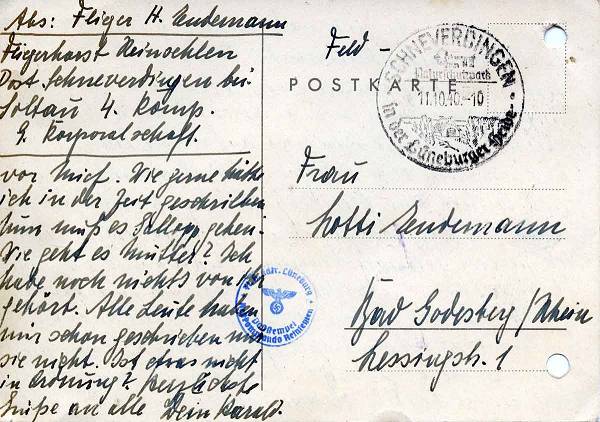 Abs: Flieger H. Endemann
Fliegerhorst Reinsehlen
Post Schneverdingen bei
Soltau 4. Komp.
9. Korporalschaft.
vor mich. Wie gerne hätte
ich in der Zeit geschrieben
nun muß es Gallopp gehen.
Wie geht es Mutter? Ich
habe noch nichts von ihr
gehört. Alle Leute haben
mir schon geschrieben nur
sie nicht. Ist etwas nicht
in Ordnung? herzlichste
Grüße an alle Dein Harald.
Feld-
POSTKARTE
SCHNEVERDINGEN
Naturschutzpark
11.10.40.-10
in der Lüneburger Heide
Frau
Lotti Endemann
Bad Godesberg/Rhein
Lessingstr. 1
Lüneburg
Reinsehlen